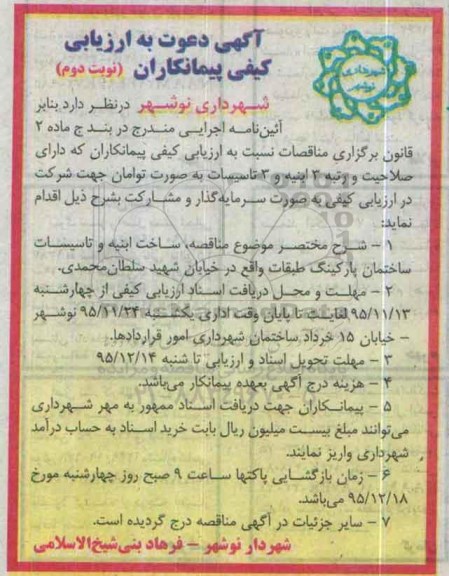 آگهی دعوت به ارزیابی
کیفی پیمانکاران (نوبت دوم)
شهرداری
نوشهر
شهرداری نوشهر درنظر دارد بنابر
آئین‌نامه اجرایی مندرج در بند ج ماده ۲
قانون برگزاری مناقصات نسبت به ارزیابی کیفی پیمانکاران که دارای
صلاحیت و رتبه ۳ ابنیه و ۳ تاسیسات به صورت توامان جهت شرکت
در ارزیابی کیفی به صورت سرمایه‌گذار و مشارکت بشرح ذیل اقدام
نماید:
۱ – شرح مختصر موضوع مناقصه، ساخت ابنیه و تاسیسات
ساختمان پارکینگ طبقات واقع در خیابان شهید سلطان‌محمدی.
۲ – مهلت و محل دریافت اسناد ارزیابی کیفی از چهارشنبه
۹۵/۱۱/۱۳ لغایت تا پایان وقت اداری یکشنبه ۹۵/۱۱/۲۴ نوشهر
– خیابان ۱۵ خرداد ساختمان شهرداری امور قراردادها.
۳ – مهلت تحویل اسناد و ارزیابی تا شنبه ۹۵/۱۲/۱۴
۴ – هزینه درج آگهی بعهده پیمانکار می‌باشد.
۵ – پیمانکاران جهت دریافت اسناد ممهور به مهر شهرداری
می‌توانند مبلغ بیست میلیون ریال بابت خرید اسناد به حساب درآمد
شهرداری واریز نمایند.
۶ – زمان بازگشایی پاکتها ساعت ۹ صبح روز چهارشنبه مورخ
۹۵/۱۲/۱۸ می‌باشد.
۷ – سایر جزئیات در آگهی مناقصه درج گردیده است.
شهردار نوشهر – فرهاد بنی‌شیخ‌الاسلامی